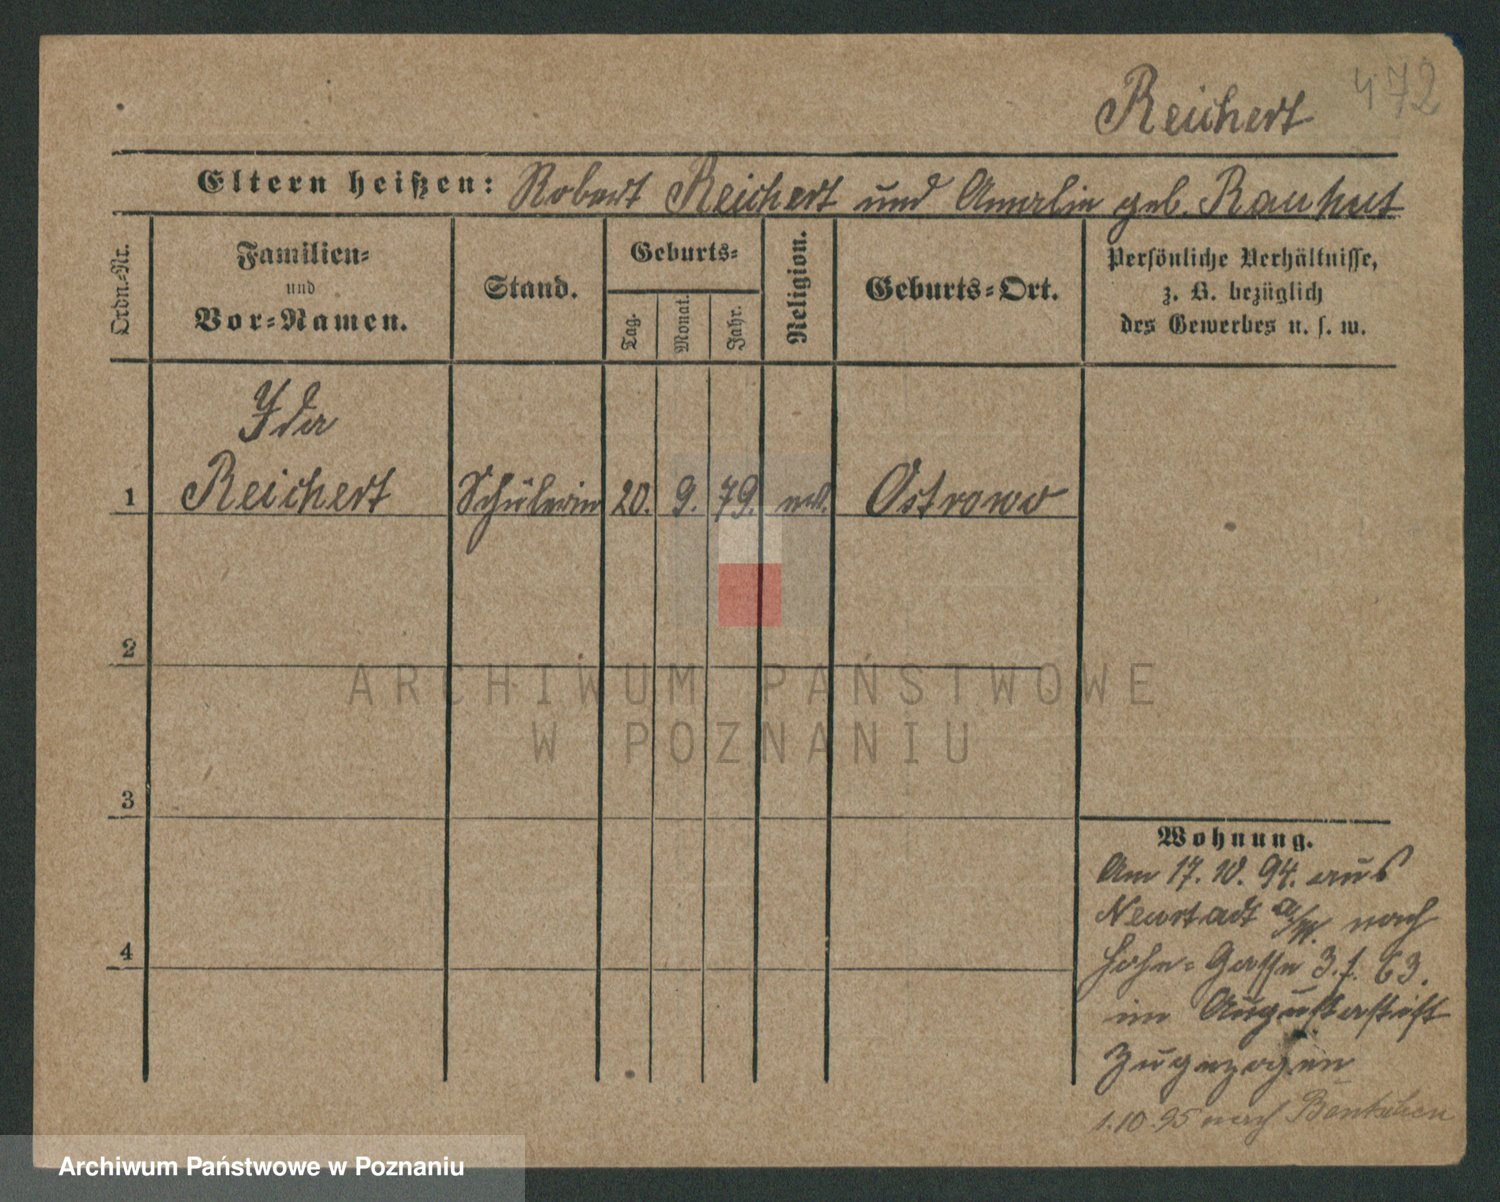 Reichert 472
Eltern heißen: Robert Reichert und Amalie geb. Rauhut
Ordn.-Nr.
Familien-
und
Vor-Namen.
Stand.
Geburts-
Tag.
Monat.
Jahr.
Religion.
Geburts-Ort.
Persönliche Verhältnisse,
z. B. bezüglich
des Gewerbes u. s. w.
Ida
1 Reichert Schülerin 20. 9. 79. Ostrowo
2
3
4
Wohnung.
Am 17.10.94. aus
Neustadt a/W. nach
Hohe-Gasse 3. f. 63.
im Augustastift
zugezogen
1.10.95 nach Bentschen
ARCHIWUM PAŃSTWOWE
W POZNANIU
Archiwum Państwowe w Poznaniu